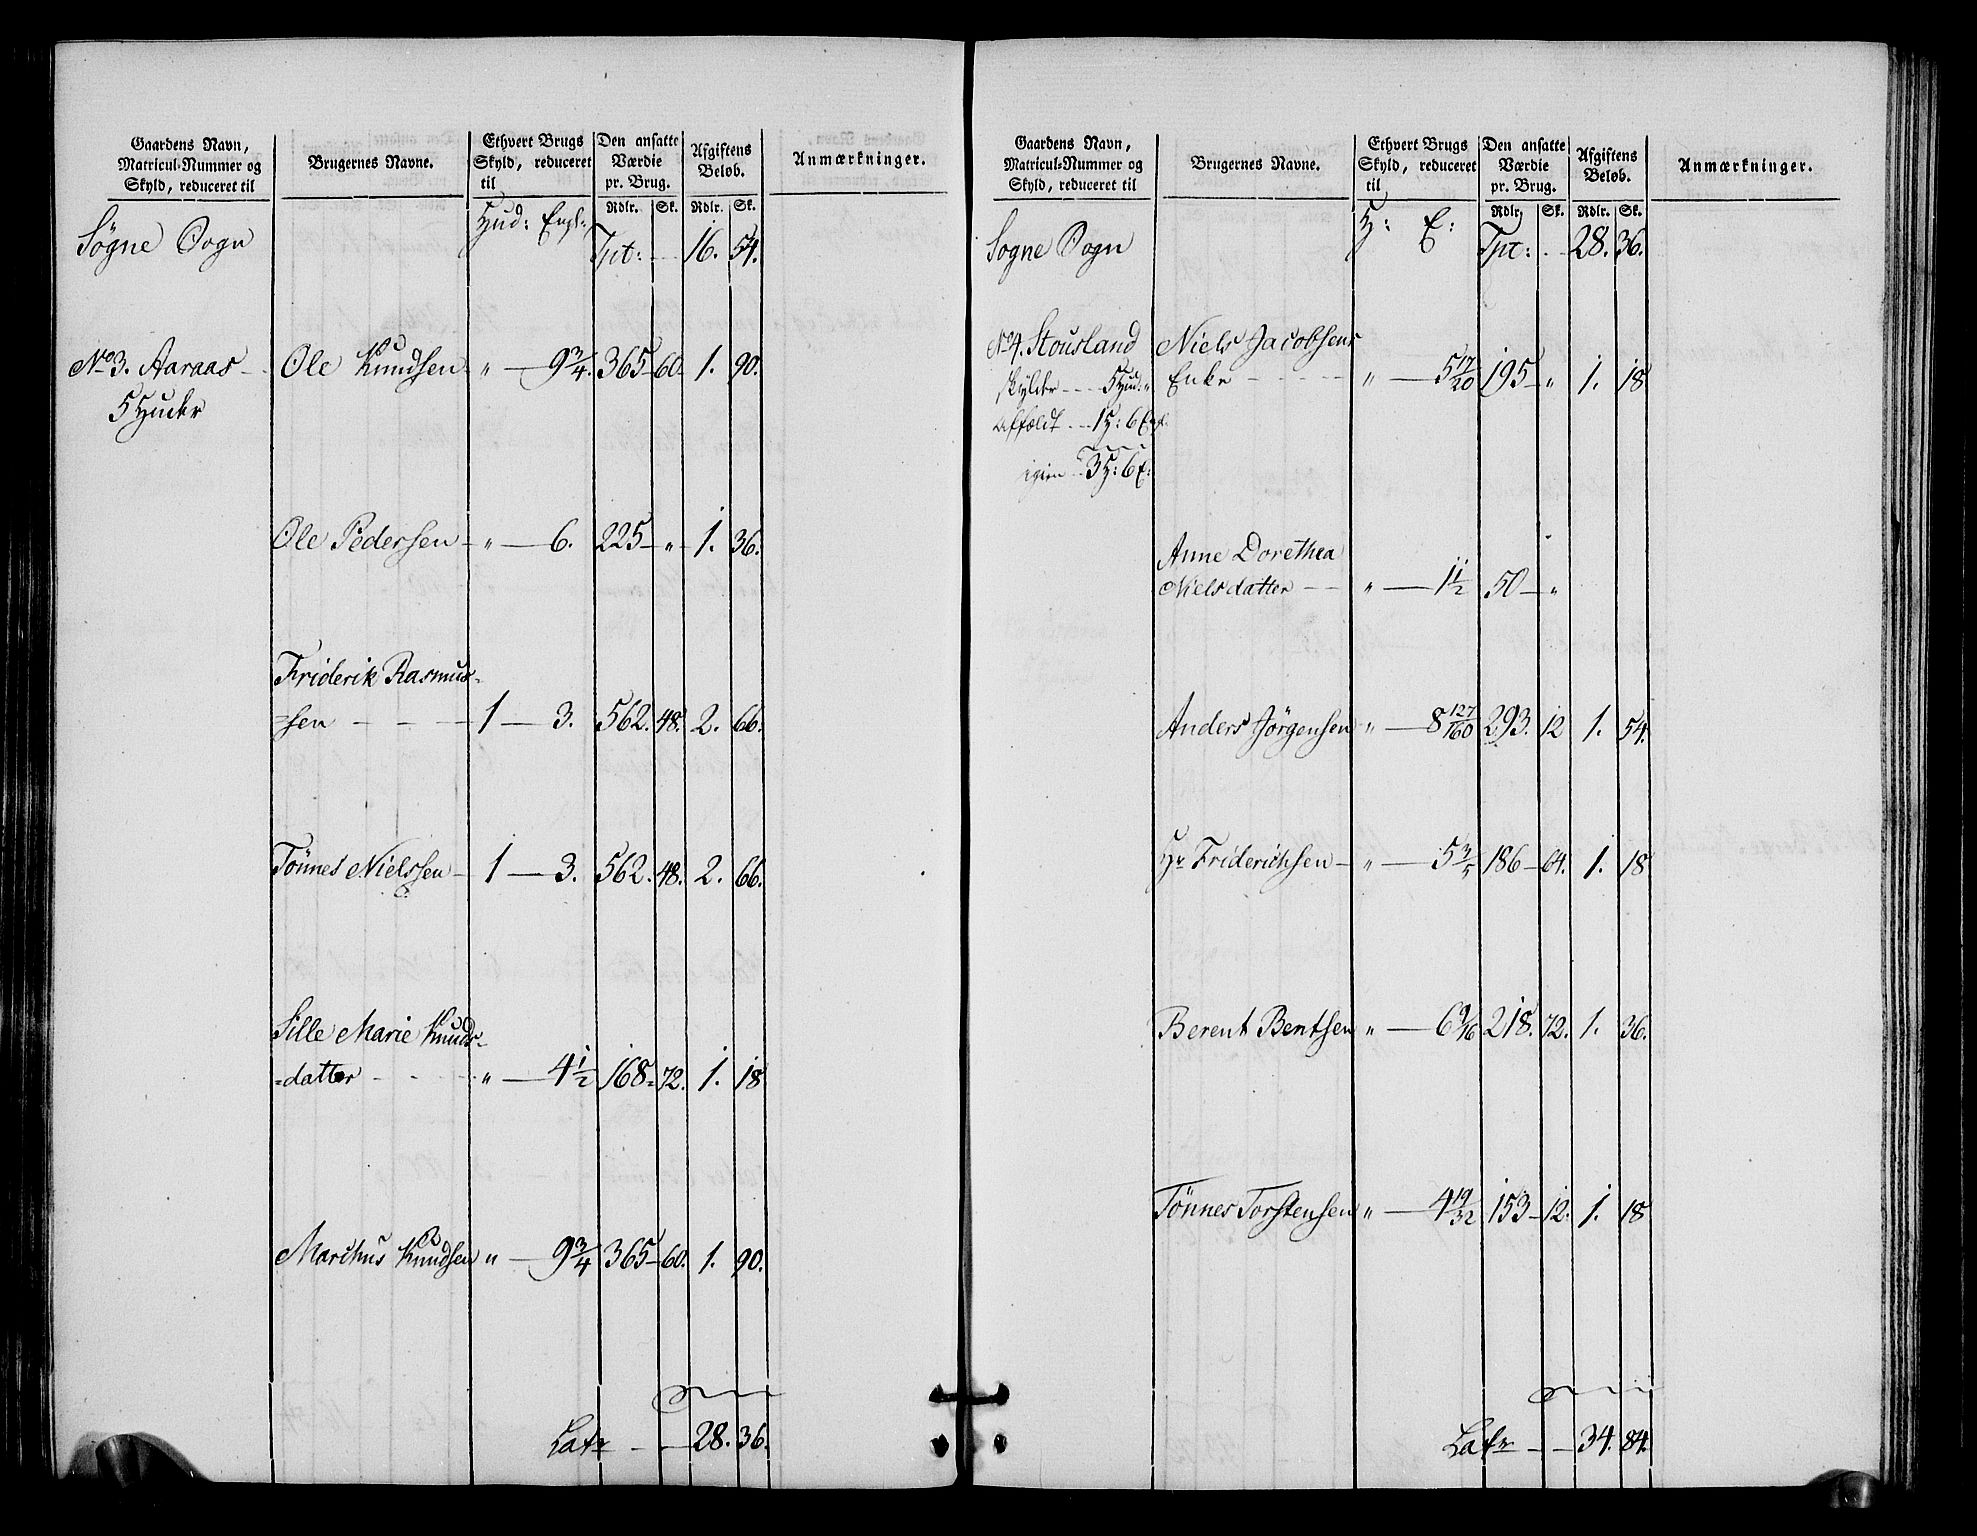 Gaardens Navn, Matricul-Nummer og Skyld, reduceret til | Brugernes Navne. | Ethvert Brugs Skyld, reduceret til | Den ansatte Værdie pr. Brug. | Afgiftens Beløb. | Anmærkninger.
Rdlr. | Sk. | Rdlr. | Sk.
Søgne Sogn | Hud: Engl: | Tpt: - - 16. 54.
No 3. Aaraas - Ole Knudsen - " — 9 3/4 365 - 60 - 1. 90.
5 Huder
Ole Pedersen - " — 6. 225 - " - 1. 36.
Friderik Rasmus-
=sen - - - 1 — 3. 562. 48. 2. 66.
Tönnes Nielssen - 1 — 3. 562. 48. 2. 66.
Sille Marie Knuds-
=datter - - - " — 4 1/2 168 - 72. 1. 18
Marchus Knudsen " — 9 3/4 365 - 60. 1. 90.
Latr - - 28. 36.
Gaardens Navn, Matricul-Nummer og Skyld, reduceret til | Brugernes Navne. | Ethvert Brugs Skyld, reduceret til | Den ansatte Værdie pr. Brug. | Afgiftens Beløb. | Anmærkninger.
Rdlr. | Sk. | Rdlr. | Sk.
Sogne Sogn | H: E: | Tpt: - - 28. 36.
No 4. Stousland Niels Jacobsens
skylder - - 5 Hud: " Enke - - - " — 5 17/20 195 - " 1. 18
affældt - - 1 H: 6 Engl.
igien - 3 H: 6 E:
Anne Dorethea
Nielsdatter - - " — 1 1/2 50 - "
Anders Jörgensen " — 8 127/160 293. 12 1. 54.
Hr Friderichsen - " — 5 3/5 186 - 64. 1. 18
Berent Bentsen " — 6 9/16 218. 72. 1. 36.
Tönnes Torstensen " — 4 19/32 153 - 12. 1. 18
Latr - - 34. 84.